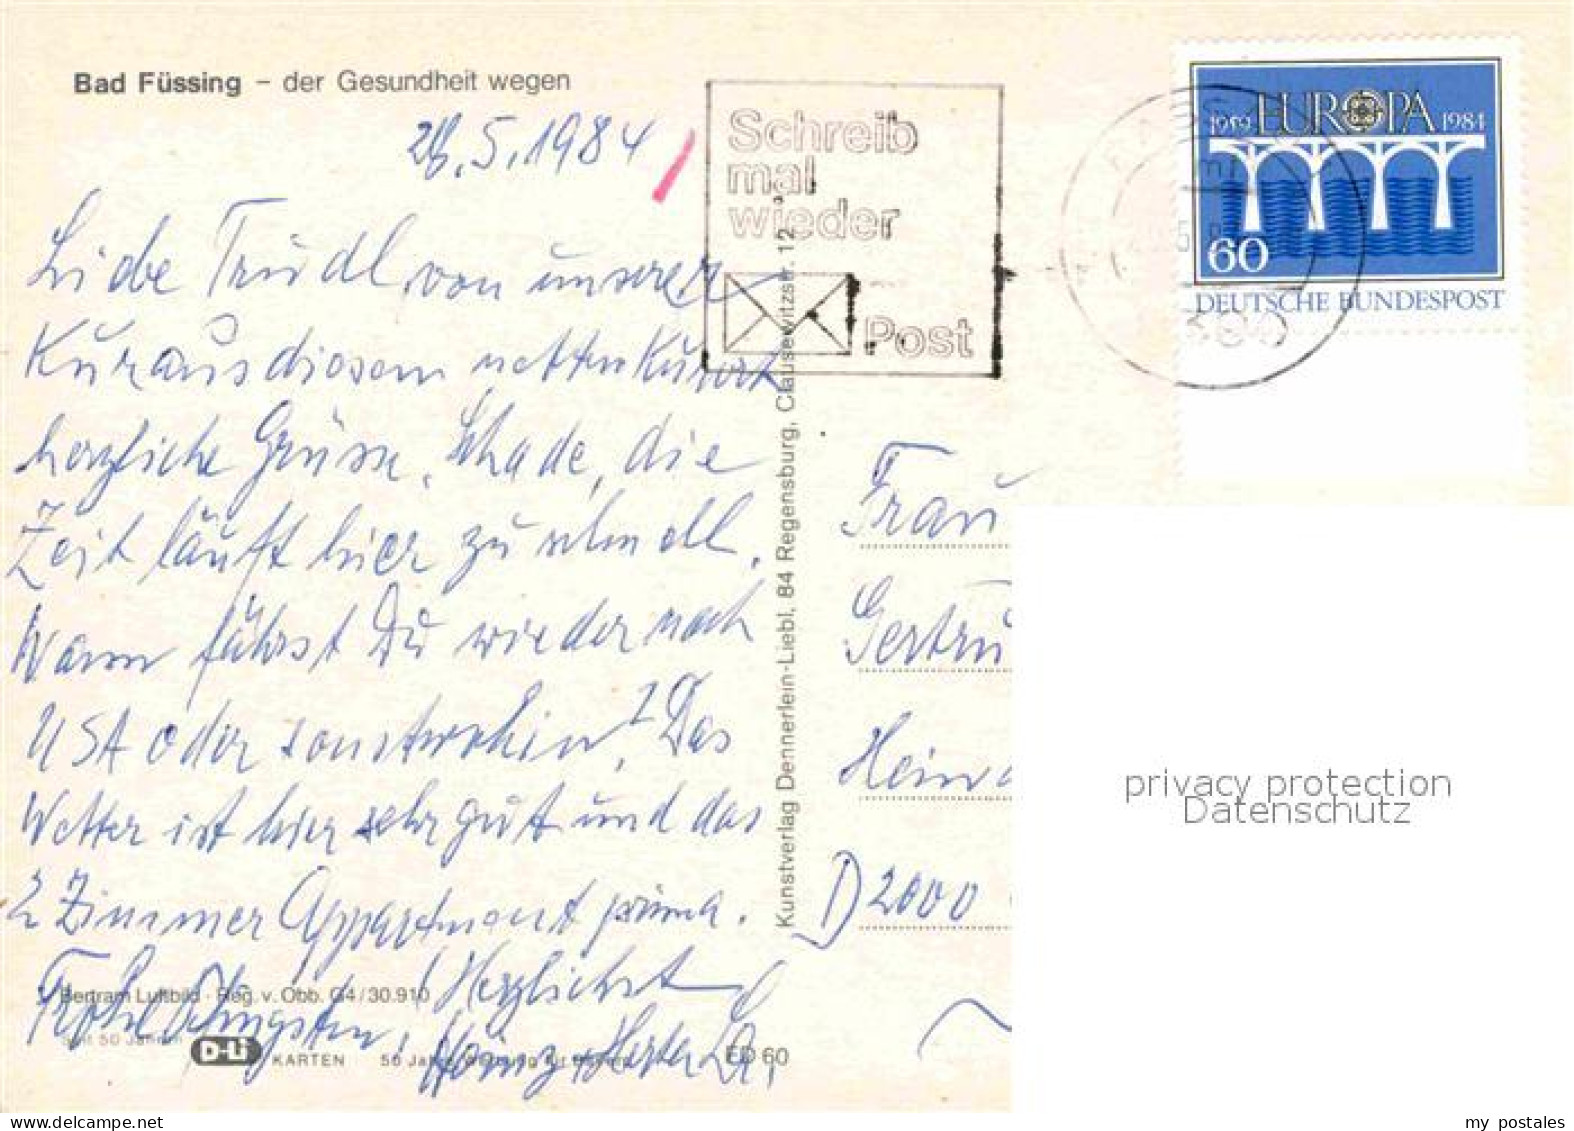 Bad Füssing – der Gesundheit wegen
28.5.1984
Liebe Trudl, von unserer
Kur aus diesem netten Kurort
herzliche Grüsse. Schade, die
Zeit läuft hier zu schnell.
Wann fährst Du wieder nach
USA oder sonstwohin? Das
Wetter ist hier sehr gut und das
2 Zimmer Appartment prima.
Frohe Pfingsten! Herzlichst
Heinz + Herta
Bertram Luftbild · Reg. v. Obb. G4/30.910
Seit 50 Jahren
D-Li KARTEN
ED 60
Kunstverlag Dennerlein-Liebl, 84 Regensburg, Clausewitzstr. 12
Schreib
mal
wieder
Post
1959 EUROPA 1984
60
DEUTSCHE BUNDESPOST
Frau
Gertru
Hein
D 2000
privacy protection
Datenschutz
my postales